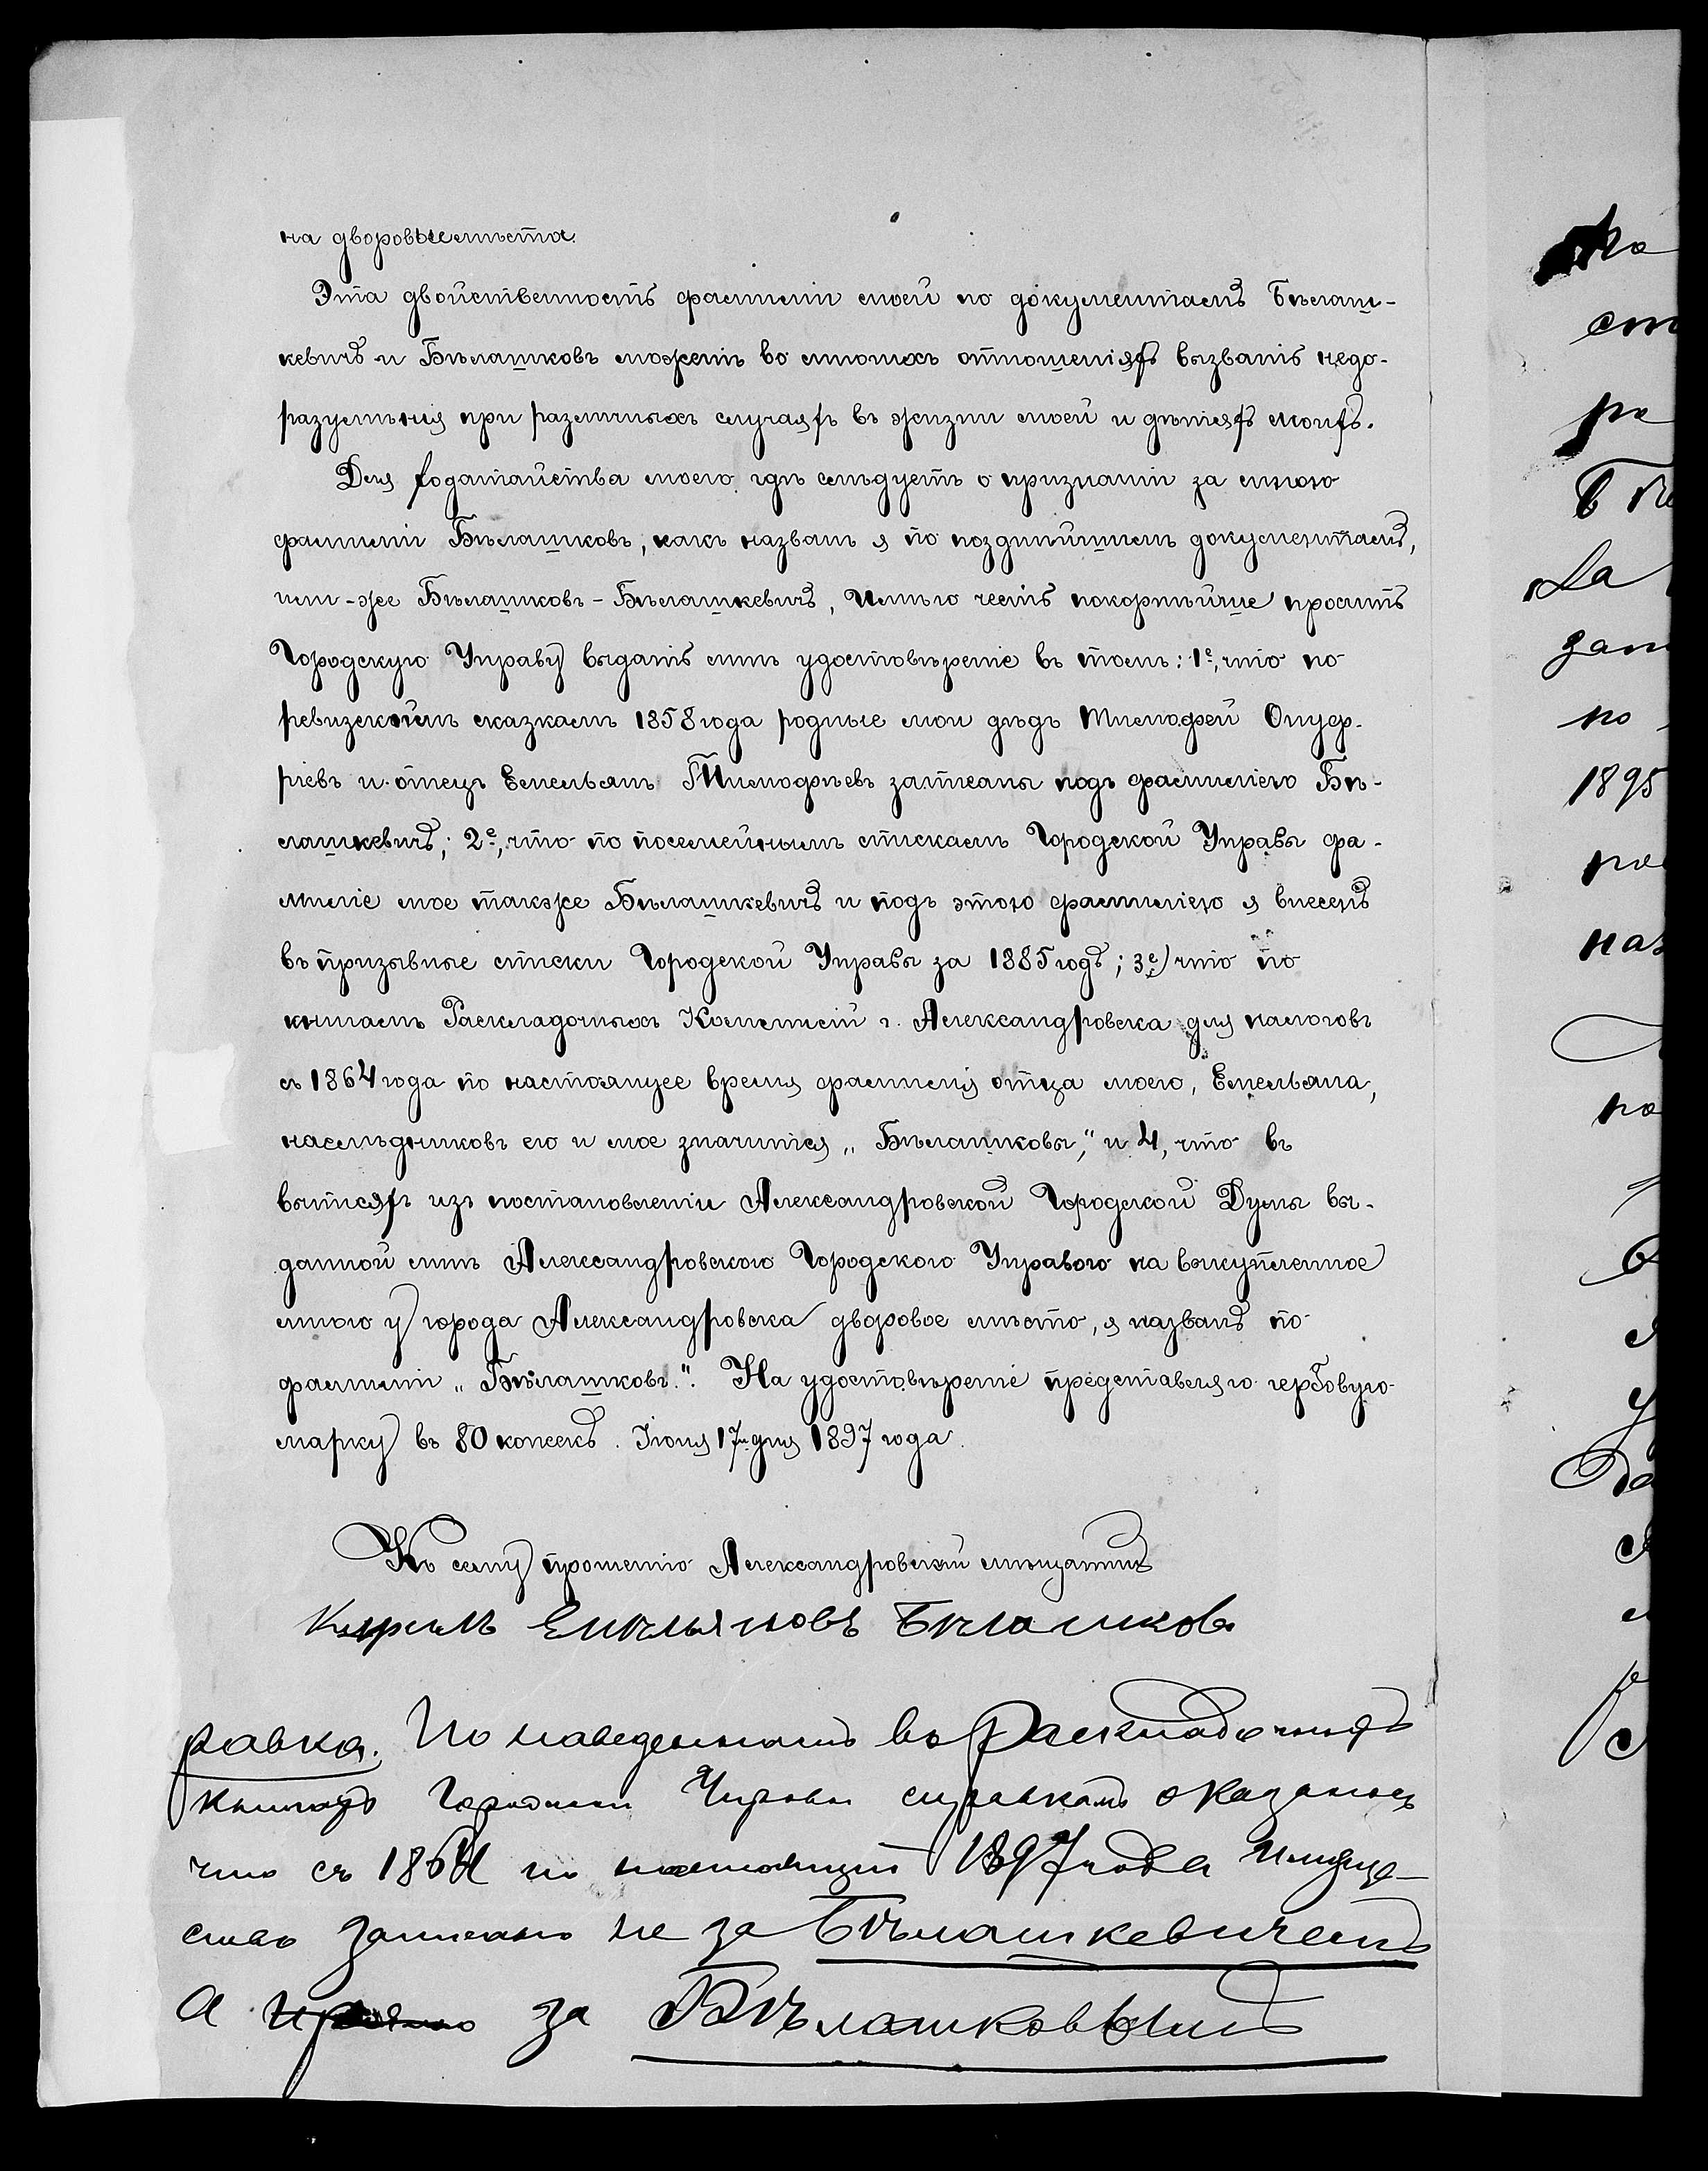 на дворовыя мѣста.
Эта двойственность фамиліи моей по документамъ Бѣлаш-
кевичъ и Бѣлашковъ можетъ во многихъ отношеніяхъ вызвать недо-
разумѣнія при различныхъ случаяхъ въ жизни моей и дѣтяхъ моихъ.
Для ходатайства моего гдѣ слѣдуетъ о признаніи за мною
фамиліи Бѣлашковъ, какъ названъ я по позднѣйшимъ документамъ,
или-же Бѣлашковъ-Бѣлашкевичъ, имѣю честь покорнѣйше просить
Городскую Управу выдать мнѣ удостовѣреніе въ томъ: 1е, что по
ревизскимъ сказкамъ 1858 года родные мои дѣдъ Тимофей Онуф-
ріевъ и отецъ Емельянъ Тимофѣевъ записаны подъ фамиліею Бѣ-
лашкевичъ; 2е, что по посемейнымъ спискамъ Городской Управы фа-
миліе мое также Бѣлашкевичъ и подъ этою фамиліею я внесенъ
въ призывные списки Городской Управы за 1885 годъ; 3е) что по
книгамъ Раскладочныхъ Коммисій г. Александровска для налоговъ
съ 1864 года по настоящее время фамилія отца моего, Емельяна,
наслѣдниковъ его и мое значится „Бѣлашковы," и 4, что въ
выписяхъ изъ постановленіи Александровской Городской Думы вы-
данной мнѣ Александровскою Городскою Управою на выкупленное
мною у города Александровска дворовое мѣсто, я названъ по
фамиліи „Бѣлашковъ.". На удостовѣреніе представляю гербовую
марку въ 80 копѣекъ. Іюня 17го дня 1897 года.
Къ сему прошенію Александровскій мѣщанинъ
Кирилъ Емельяновъ Бѣлашковъ
равка. По наведеннымъ въ Раскладочныхъ
книгахъ Городской Управы справкамъ оказалось
что съ 1864 по настоящій 1897 года имуще-
ство записано не за Бѣлашкевичемъ
а за Бѣлашковымъ
1895